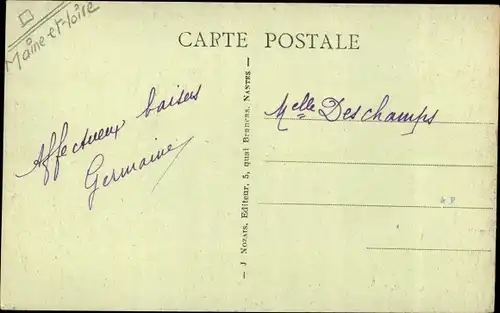 Maine-et-Loire
CARTE POSTALE
Affectueux baisers
Germaine
Melle Deschamps
— J Nozais, Editeur, 5, quai Brancas, Nantes —